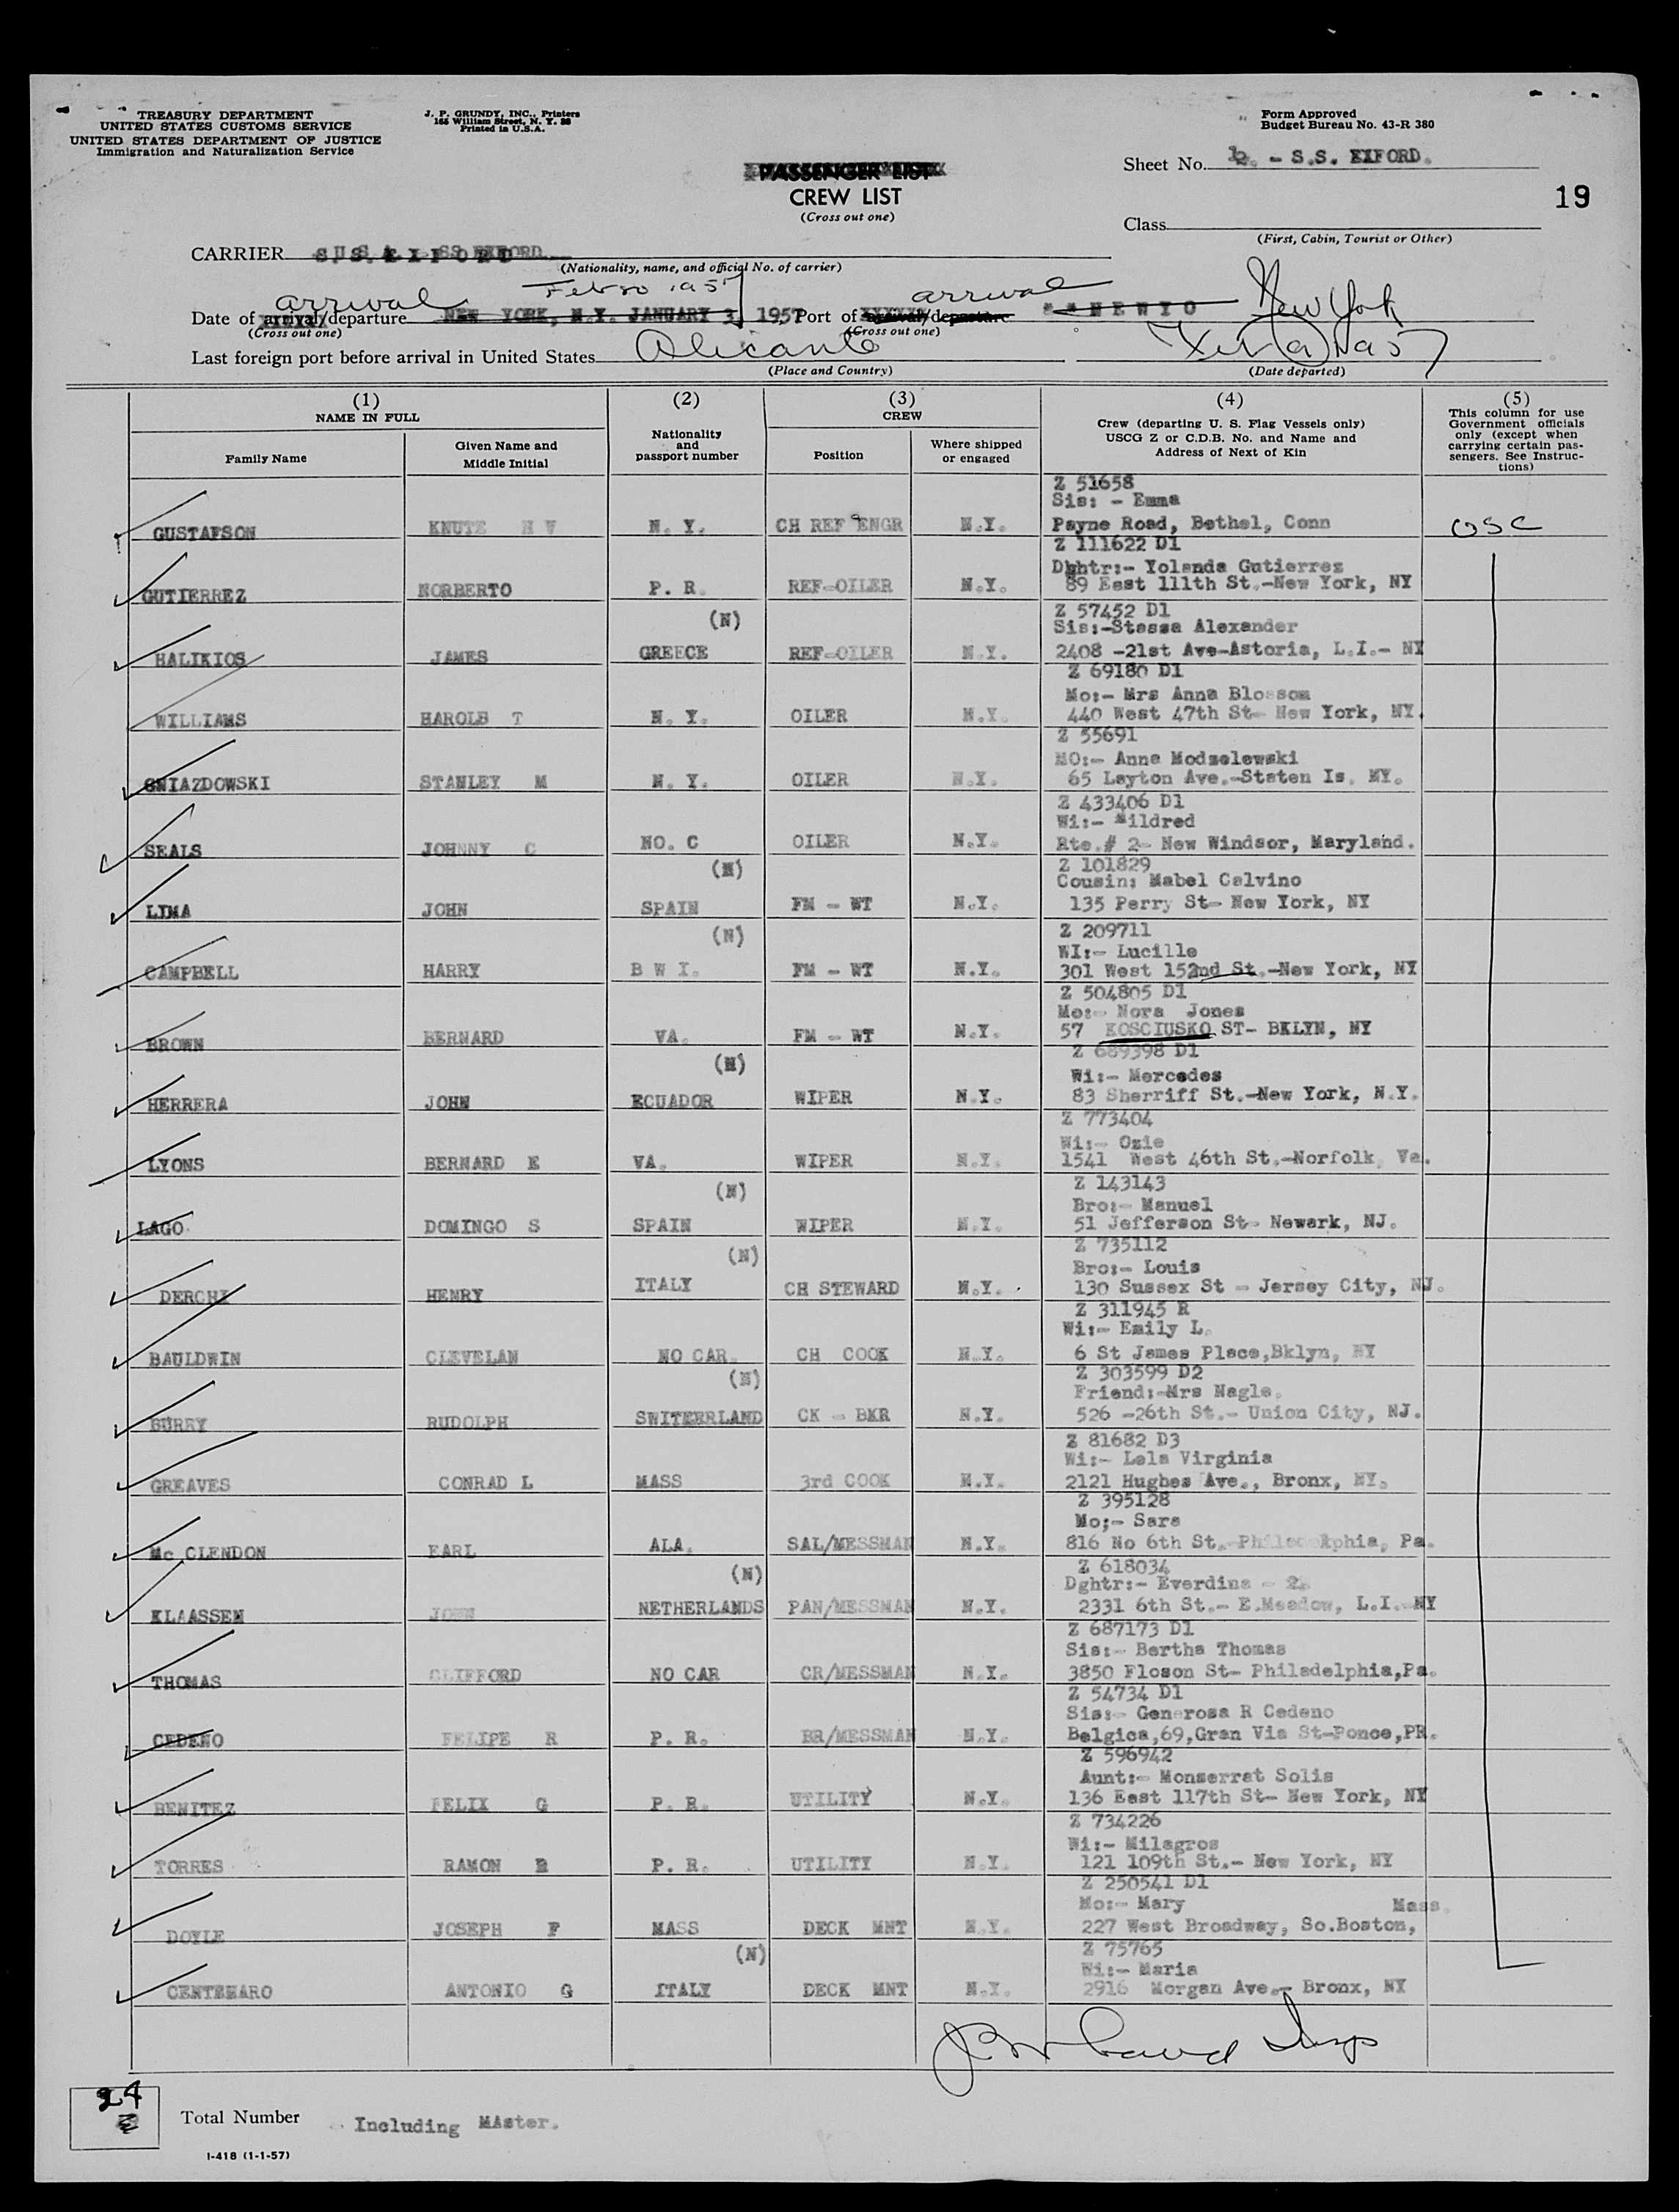 TREASURY DEPARTMENT
UNITED STATES CUSTOMS SERVICE
UNITED STATES DEPARTMENT OF JUSTICE
Immigration and Naturalization Service
J. P. GRUNDY, INC., Printers
Printed in U.S.A.
Form Approved
Budget Bureau No. 43-R 380
Sheet No. - S.S. EXFORD.
PASSENGER LIST
CREW LIST
(Cross out one)
19
Class
(First, Cabin, Tourist or Other)
CARRIER
(Nationality, name, and official No. of carrier)
arrival
arrival
Date of arrival/departure NEW YORK, N.Y. JANUARY 3, 1957 Port of arrival/departure New York
(Cross out one) (Cross out one)
Last foreign port before arrival in United States Alicante
(Place and Country) (Date departed)
(1) (2) (3) (4) (5)
NAME IN FULL Nationality and passport number CREW Crew (departing U. S. Flag Vessels only) USCG Z or C.D.B. No. and Name and Address of Next of Kin This column for use Government officials only (except when carrying certain passengers. See Instructions)
Family Name Given Name and Middle Initial Position Where shipped or engaged
Z 51658
Sis: - Emma
GUSTAFSON KNUTE H V N. Y. CH REF ENGR N.Y. Payne Road, Bethel, Conn USC
Z 111622 D1
Dghtr:- Yolanda Gutierrez
GUTIERREZ NORBERTO P. R. REF-OILER N.Y. 89 East 111th St.-New York, NY
(N) Z 57452 D1
Sis:-Stassa Alexander
HALIKIOS JAMES GREECE REF-OILER N.Y. 2408 -21st Ave-Astoria, L.I.- NY
Z 69180 D1
Mo:- Mrs Anna Blossom
WILLIAMS HAROLB T N. Y. OILER N.Y. 440 West 47th St- New York, NY.
Z 55691
MO:- Anna Modzelewski
GNIAZDOWSKI STANLEY M N. Y. OILER N.Y. 65 Layton Ave.-Staten Is. NY.
Z 433406 D1
Wi:- Mildred
SEALS JOHNNY C NO. C OILER N.Y. Rte.# 2- New Windsor, Maryland.
(N) Z 101829
Cousin: Mabel Calvino
LIMA JOHN SPAIN FM - WT N.Y. 135 Perry St- New York, NY
(N) Z 209711
WI:- Lucille
CAMPBELL HARRY B W I. FM - WT N.Y. 301 West 152nd St.-New York, NY
Z 504805 D1
Mo:- Nora Jones
BROWN BERNARD VA. FM - WT N.Y. 57 KOSCIUSKO ST- BKLYN, NY
(N) Z 689398 D1
Wi:- Mercedes
HERRERA JOHN ECUADOR WIPER N.Y. 83 Sherriff St.-New York, N.Y.
Z 773404
Wi:- Ozie
LYONS BERNARD E VA. WIPER N.Y. 1541 West 46th St.-Norfolk, Va.
(N) Z 143143
Bro:- Manuel
LAGO DOMINGO S SPAIN WIPER N.Y. 51 Jefferson St- Newark, NJ.
(N) Z 735112
Bro:- Louis
DERCHI HENRY ITALY CH STEWARD N.Y. 130 Sussex St - Jersey City, NJ.
Z 311945 R
Wi:- Emily L.
BAULDWIN CLEVELAN NO CAR. CH COOK N.Y. 6 St James Place,Bklyn, NY
(N) Z 303599 D2
Friend:-Mrs Nagle.
BURRY RUDOLPH SWITZERLAND CK - BKR N.Y. 526 -26th St.- Union City, NJ.
Z 81682 D3
Wi:- Lela Virginia
GREAVES CONRAD L MASS 3rd COOK N.Y. 2121 Hughes Ave., Bronx, NY.
Z 395128
Mo;- Sara
Mc CLENDON EARL ALA. SAL/MESSMAN N.Y. 816 No 6th St. Pa.
(N) Z 618034
Dghtr:- Everdina
KLAASSEN JOHN NETHERLANDS PAN/MESSMAN N.Y. 2331 6th St.- E.Meadow, L.I. NY
Z 687173 D1
Sis:- Bertha Thomas
THOMAS CLIFFORD NO CAR CR/MESSMAN N.Y. 3850 Floson St- Philadelphia,Pa.
Z 54734 D1
Sis:- Generosa R Cedeno
CEDENO FELIPE R P. R. BR/MESSMAN N.Y. Belgica,69,Gran Via St-Ponce,PR.
Z 596942
Aunt:- Monserrat Solis
BENITEZ FELIX G P. R. UTILITY N.Y. 136 East 117th St- New York, NY
Z 734226
Wi:- Milagros
TORRES RAMON P. R. UTILITY N.Y. 121 109th St.- New York, NY
Z 250541 D1
Mo:- Mary Mass.
DOYLE JOSEPH F MASS DECK MNT N.Y. 227 West Broadway, So.Boston,
(N) Z 75765
Wi:- Maria
CENTENARO ANTONIO G ITALY DECK MNT N.Y. 2916 Morgan Ave.- Bronx, NY
24
Total Number Including MAster.
I-418 (1-1-57)